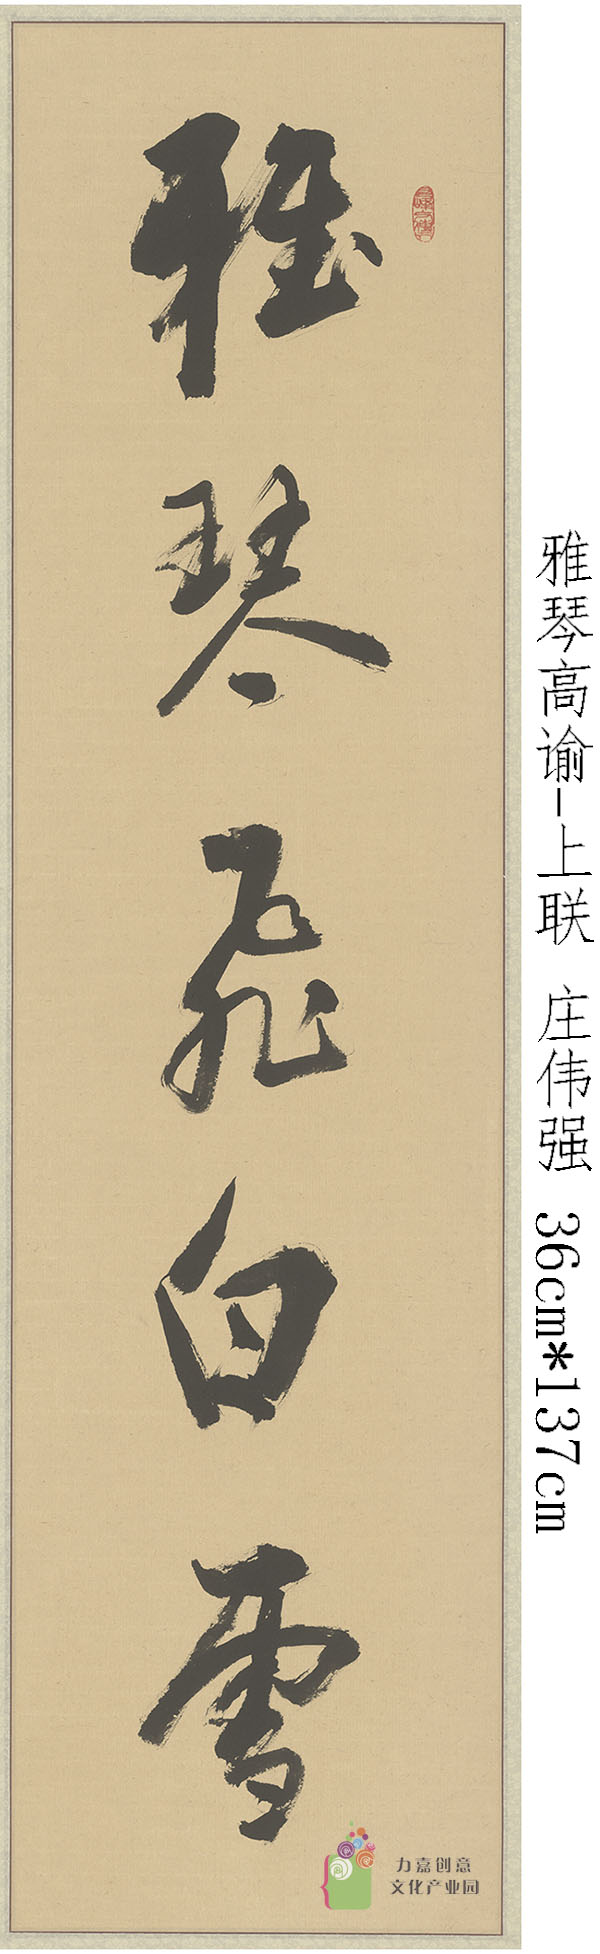 雅琴飛白雪
雅琴高谕-上联 庄伟强 36cm*137cm
力嘉创意
文化产业园